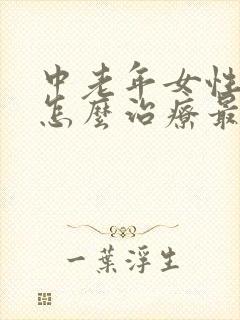 中老年女性
怎麼治療最
一葉浮生